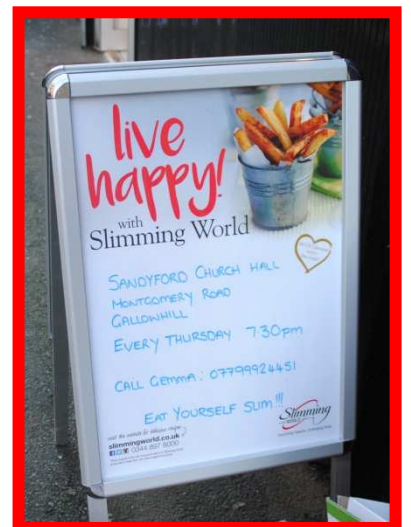 live
happy!
with
Slimming World
SANDYFORD CHURCH HALL
MONTGOMERY ROAD
GALLOWHILL
EVERY THURSDAY 730pm
CALL GEMMA: 07799924451
EAT YOURSELF SLIM!!!
Slimming
WORLD
slimmingworld.co.uk
0344 897 8000